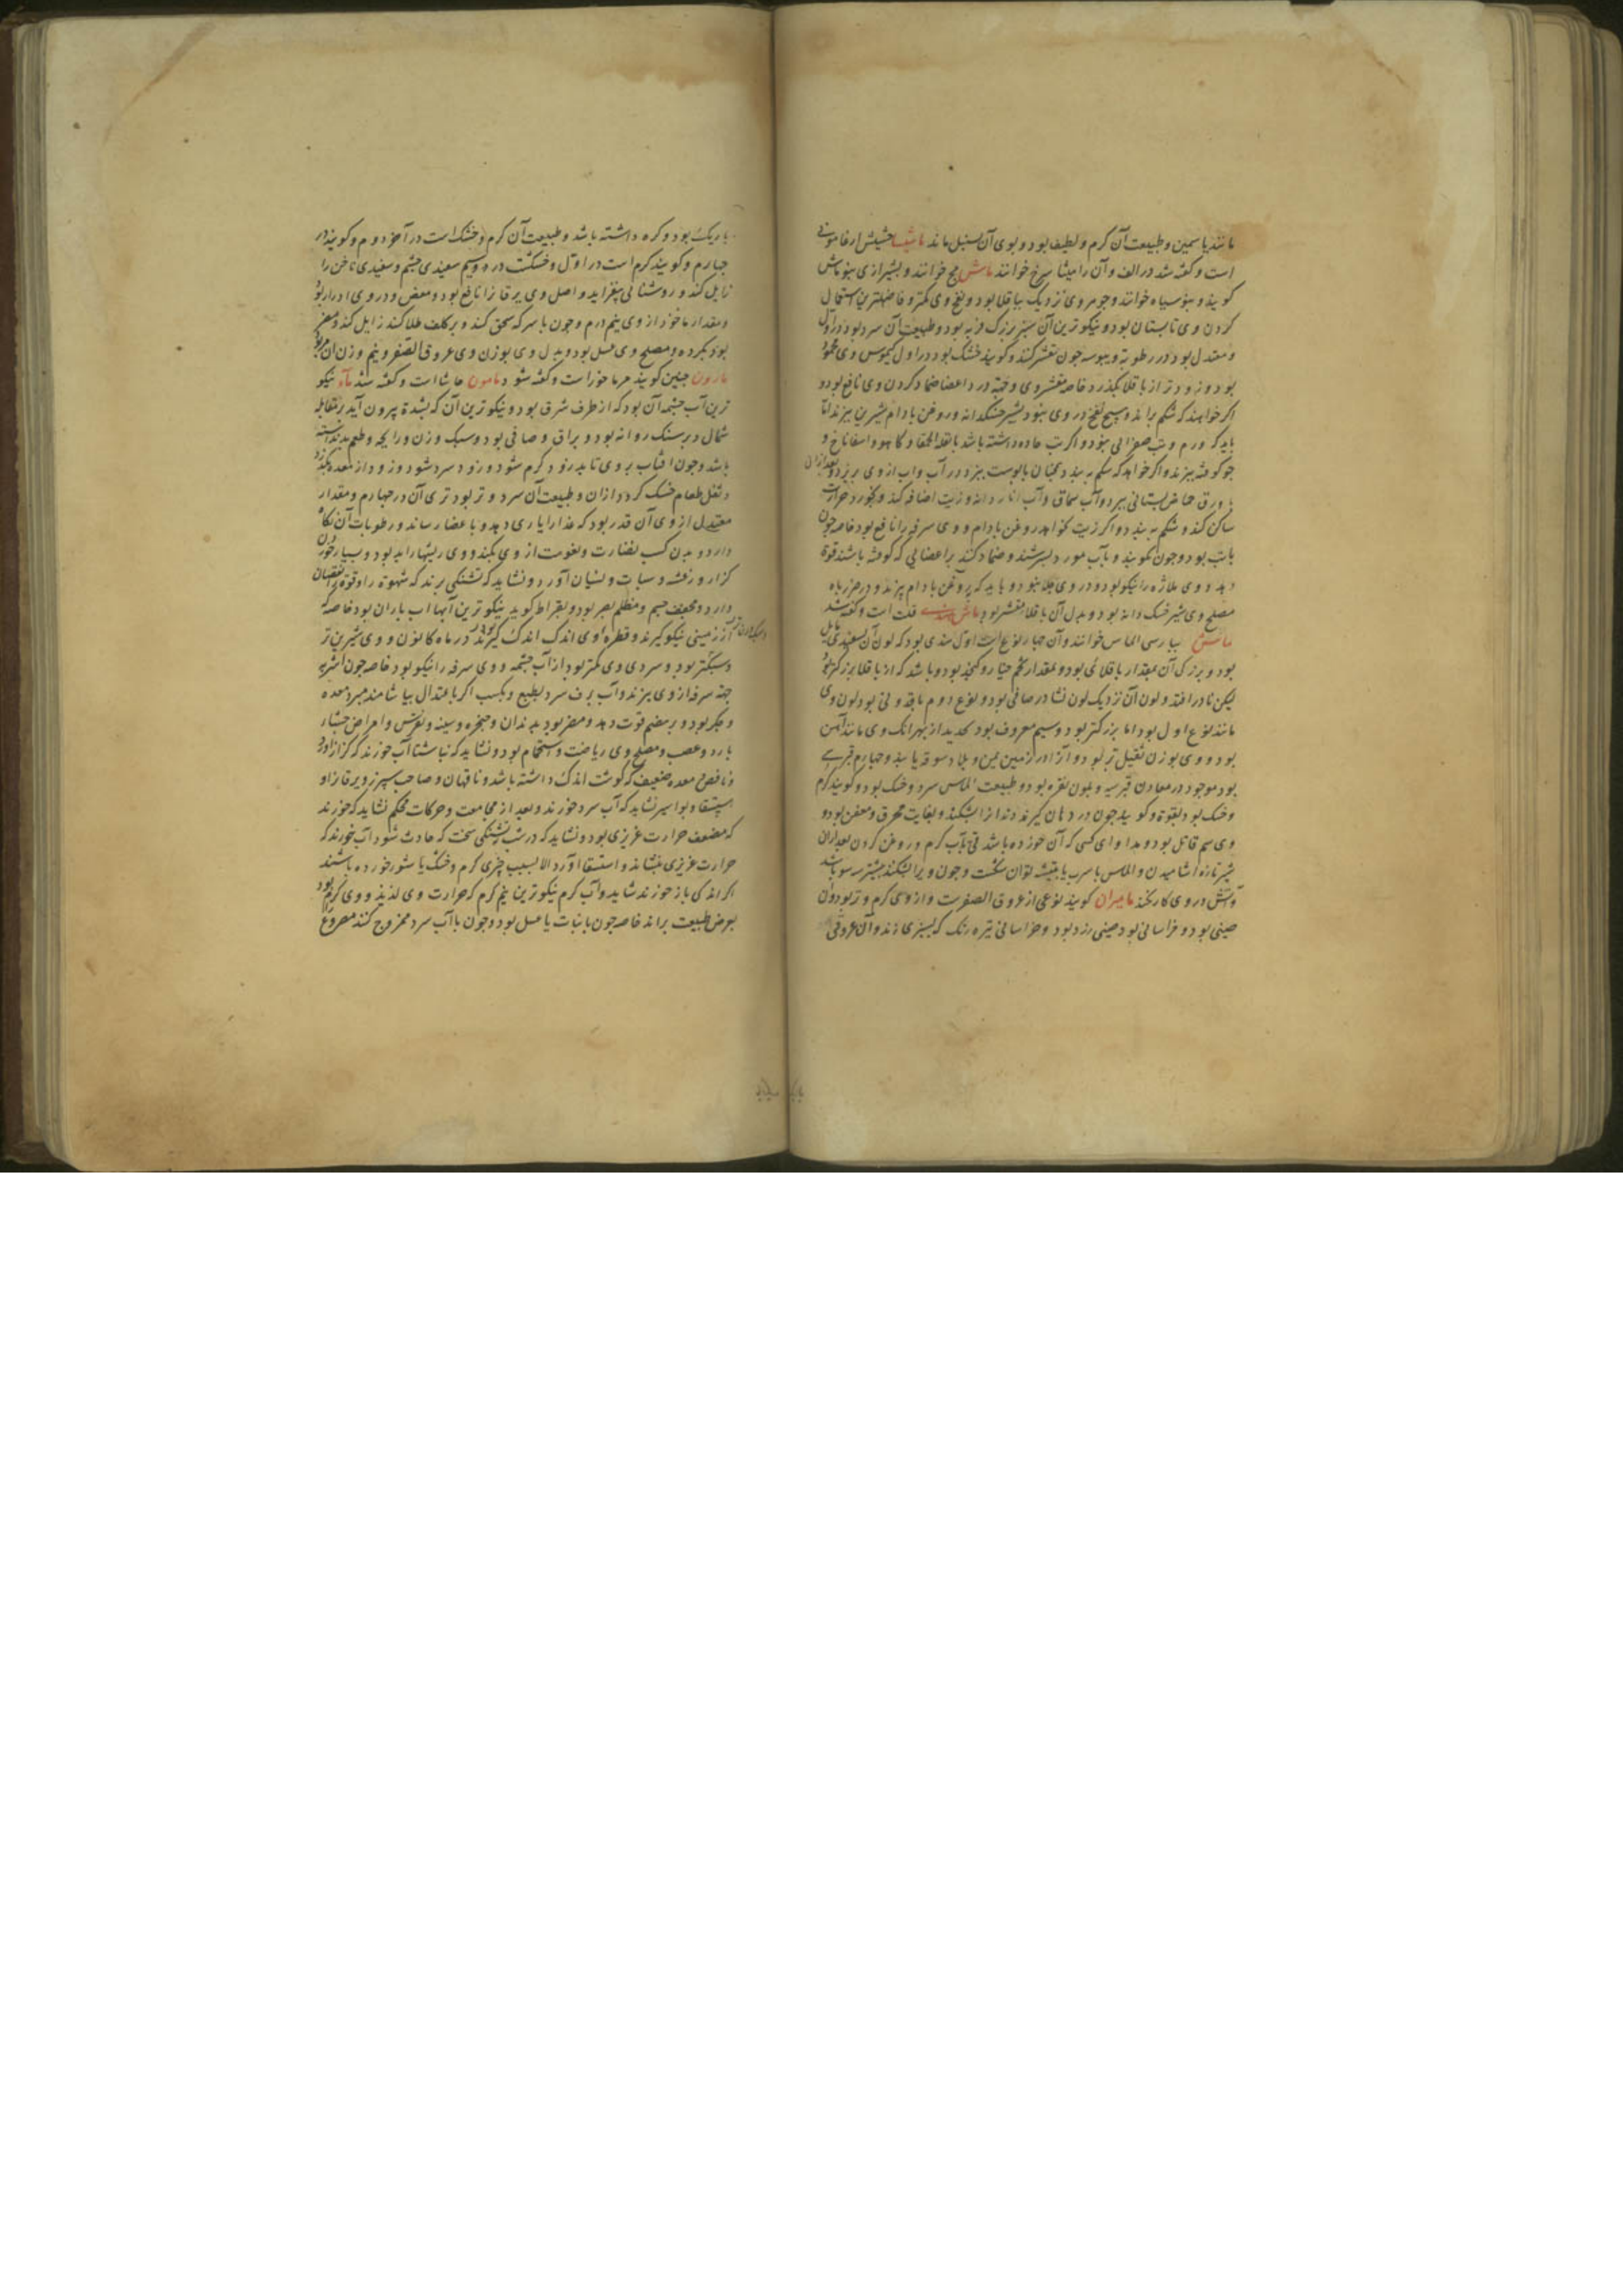 مانند یاسمین و طبیعت آن گرم و لطیف بود و بوی آن بسنبل ماند ماشیا حشیش ارغامونی
است و گفته شد در الف و آن را میشا سرخ خوانند ماش مج خوانند و بشیرازی بنو ماش
کویند و بنو سیاه خوانند و جوهر وی نزدیک بباقلا بود و نفخ وی کمتر و فاضلترین استعمال
کردن وی تابستان بود و نیکوترین آن سبز بزرگ فربه بود و طبیعت آن سرد بود در اول
و معتدل بود در رطوبة و یبوسه چون مقشر کنند و کویند خشک بود در اول کیموس وی محمود
بود و زودتر از باقلا بگذرد خاصه مقشر وی و جهة درد اعضا ضماد کردن وی نافع بود و
اکر خواهند که شکم براند و هیچ نفخ در وی نبود بشیر خشکدانه و روغن بادام شیرین بپزند اما
باید که ورم و تب صفرائی نبود و اکر تب حاده داشته باشد با بقلة الحمقا و کاهو و اسفاناخ و
جو کوفته بپزند و اکر خواهد که شکم به بندد همچنان با پوست بپزد در آب و آب از وی بریزد و بعد از آن
با ورق حماض بستانی بپزد و آب سماق و آب انار دانه و زیت اضافه کند و بخورد حرارت
ساکن کند و شکم به بندد و اکر زیت نخواهد روغن بادام و وی سرفه را نافع بود خاصه چون
باتب بود و چون بکوبند و بآب مورد بسرشند و ضماد کنند بر اعضائی که کوفته باشند قوة
دهد و وی ملازه را نیکو بود و در وی جلا نبود و باید که بروغن بادام پزند و در خربزه
مصلح وی شیر خسک دانه بود و بدل آن باقلا مقشر بود ماش هندی قلت است و گفته شد
ماس بپارسی الماس خوانند و آن چهار نوع است اول هندی بود که لون آن بسفیدی مایل
بود و بزرکی آن بمقدار باقلائی بود و بمقدار تخم خیار و کنجد بود و باشد که از باقلا بزرکتر بود
لیکن نادر افتد و لون آن نزدیک لون نشادر صافی بود و نوع دوم ماقدونی بود لون وی
مانند نوع اول بود اما بزرکتر بود و سیم معروف بود بحدید از بهر آنک وی مانند آهن
بود و وی بوزن ثقیل تر بود و آن را در زمین یمن و بلاد سوقه یابند و چهارم قبرسی
بود موجود در معادن قبرسیه و بلون نقره بود و طبیعت الماس سرد و خشک بود و کویند کرم
و خشک بود بقوة و کویند چون در دهان کیرند دندانرا بشکند و بغایت محرق و معفن بود و
وی سم قاتل بود و مداوای کسی که آن خورده باشد قی بآب کرم و روغن کردن بعد از آن
شیر تازه آشامیدن و الماس با سرب یا بتیشه توان شکست و چون ویرا بشکنند بیشتر سه سو باشد
و آتش در وی کار نکند مامیران کویند نوعی از عروق الصفرست و از وی کرم و تر بود و آن
چینی بود و خراسانی بود چینی زرد بود و خراسانی تیره رنک که بسبزی زند و آن عروقی
باریک بود و کره داشته باشد و طبیعت آن کرم و خشک است در آخر دوم و کویند در
چهارم و کویند کرم است در اول و خشکست در دوم و سیم سفیدی چشم و سفیدی ناخن را
زایل کند و روشنائی بیفزاید و اصل وی یرقان را نافع بود و مغص و در وی ادرار بود
و مقدار ماخوذ از وی نیم درم و چون با سرکه سحق کنند و بر کلف طلا کنند زایل کند و مضر
بود بکرده و مصلح وی عسل بود و بدل وی بوزن وی عروق الصفر و نیم وزن آن مر بود
مارون چنین کویند مرماحوز است و گفته شود مامون حاشا است و گفته شد ماء نیکو
ترین آب چشمه آن بود که از طرف شرق بود و نیکوترین آن که بشدة بیرون آید در مقابله
شمال و بر سنک روانه بود و براق و صافی بود و سبک وزن و رایحه و طعم بد نداشته
باشد و چون آفتاب بر وی تابد زود کرم شود و زود سرد شود و زود از معده بگذرد
و ثقل طعام خشک کردد از آن و طبیعت آن سرد و تر بود تری آن در چهارم و مقدار
معتدل از وی آن قدر بود که غذا را یاری دهد و باعضا رساند و رطوبات آن نگاه
دارد و بدن کسب نضارت و نعومت از وی بکند و وی ریشها را بد بود و بسیار خوردن
کزاز و رعشه و سبات و نسیان آورد و نشاید که تشنگی برند که شهوة را و قوة را نقصان
دارد و مجفف جسم و مظلم بصر بود و بقراط کوید نیکوترین آبها آب باران بود خاصه که
از زمینی نیکو کیرند و قطره وی اندک اندک کیرند و در ماه کانون و وی شیرین تر
و سبکتر بود و سردی وی کمتر بود از آب چشمه و وی سرفه را نیکو بود خاصه چون اشربه
جهة سرفه از وی بپزند و آب برف سرد بطبع و بکسب اکر باعتدال بیاشامند مبرد معده
و جکر بود و بر هضم قوت دهد و مضر بود بدندان و حنجره و سینه و نقرس و امراض احشاء
بارد و عصب و مصلح وی ریاضت و استحمام بود و نشاید که ناشتا آب خورند که کزاز آورد
و ناقص معده ضعیف که کوشت اندک داشته باشد و ناقهان و صاحب سپرز و یرقان و
استسقا و بواسیر نشاید که آب سرد خورند و بعد از مجامعت و حرکات محکم نشاید که خورند
که مضعف حرارت غریزی بود و نشاید که در شب تشنگی سخت که حادث شود آب خورند که
حرارت غریزی بنشاند و استسقا آورد الا بسبب چیزی کرم و خشک یا شور خورده باشند
اکر اندکی باز خورند شاید و آب کرم نیکوترین نیم کرم که حرارت وی لذیذ و وی کرم بود
بعرض طبیعت براند خاصه چون بانبات یا عسل بود و چون با آب سرد ممزوج کنند مصروع